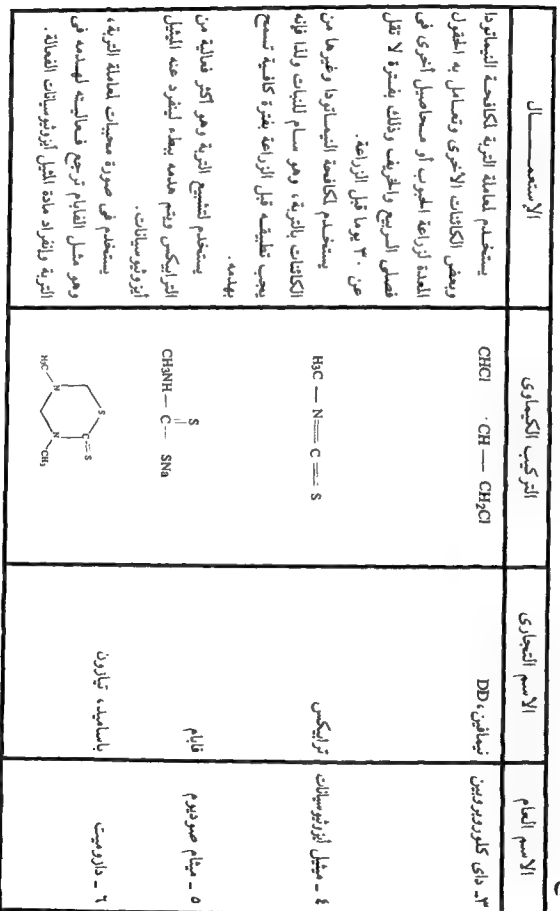 الاسم العام
الاسم التجارى
التركيب الكيماوى
الاستعمـــــال
٣ـ داى كلوروبروبين
نيمافين، DD
CHCl · CH — CH₂Cl
يستخدم لمعاملة التربة لمكافحة النيماتودا
وبعض الكائنات الأخرى وتعامل به الحقول
المعدة لزراعة الحبوب أو محاصيل أخرى فى
فصلى الربيع والخريف وذلك بفترة لا تقل
عن ٣٠ يوما قبل الزراعة.
٤ ـ ميثيل أيزوثيوسيانات
ترابيكس
H₃C — N = C = S
يستخدم لمكافحة النيماتودا وغيرها من
الكائنات بالتربة، وهو سام للنبات ولذا فإنه
يجب تطبيقه قبل الزراعة بفترة كافية تسمح
بهدمه.
٥ ـ ميثام صوديوم
فابام
S
CH₃NH — C — SNa
يستخدم لتشبيع التربة وهو أكثر فعالية من
الترابيكس ويتم هدمه ببطء لينفرد عنه الميثيل
أيزوثيوسيانات.
٦ ـ دازوميت
باساميد، تيازون
S
C = S
H₃C — N
N — CH₃
يستخدم فى صورة محببات لمعاملة التربة،
وهو مثل الفابام ترجع فعاليته لهدمه فى
التربة وإنفراد مادة المثيل أيزوثيوسيانات الفعالة.